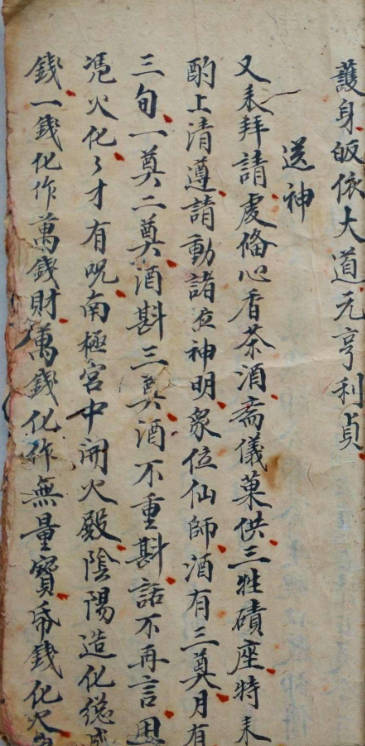 護身皈依大道元亨利貞
送神
又来拜請虔俻心香茶酒斋儀菓供三牲磧座特来
酌上清遵請動諸位神明衆位仙師酒有三奠月有
三旬一奠二奠酒斟三奠酒不重斟話不再言恩
凴火化々才有呪南極宮中開火殿陰陽造化總成
錢一錢化作萬錢財萬錢化作無量寶帋錢化火為